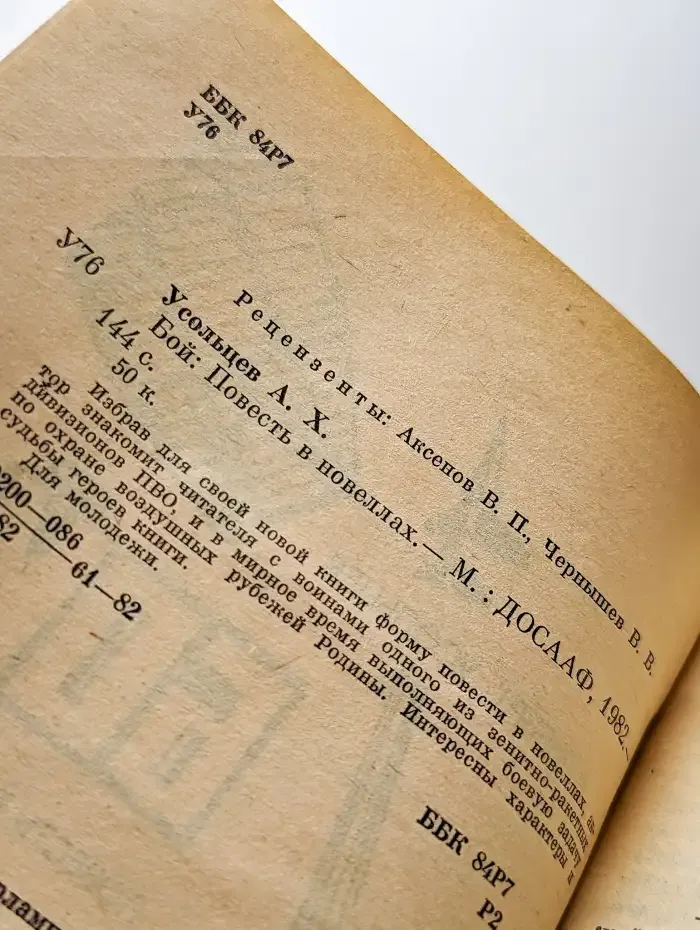 ББК 84Р7
У76
Рецензенты: Аксенов В. П., Чернышев В. В.
Усольцев А. Х.
У76 Бой: Повесть в новеллах.— М.: ДОСААФ, 1982.—
144 с.
50 к.
Избрав для своей новой книги форму повести в новеллах, ав-
тор знакомит читателя с воинами одного из зенитно-ракетных
дивизионов ПВО, и в мирное время выполняющих боевую задачу
по охране воздушных рубежей Родины. Интересны характеры и
судьбы героев книги.
Для молодежи.
200—086
82
61—82
ББК 84Р7
Р2